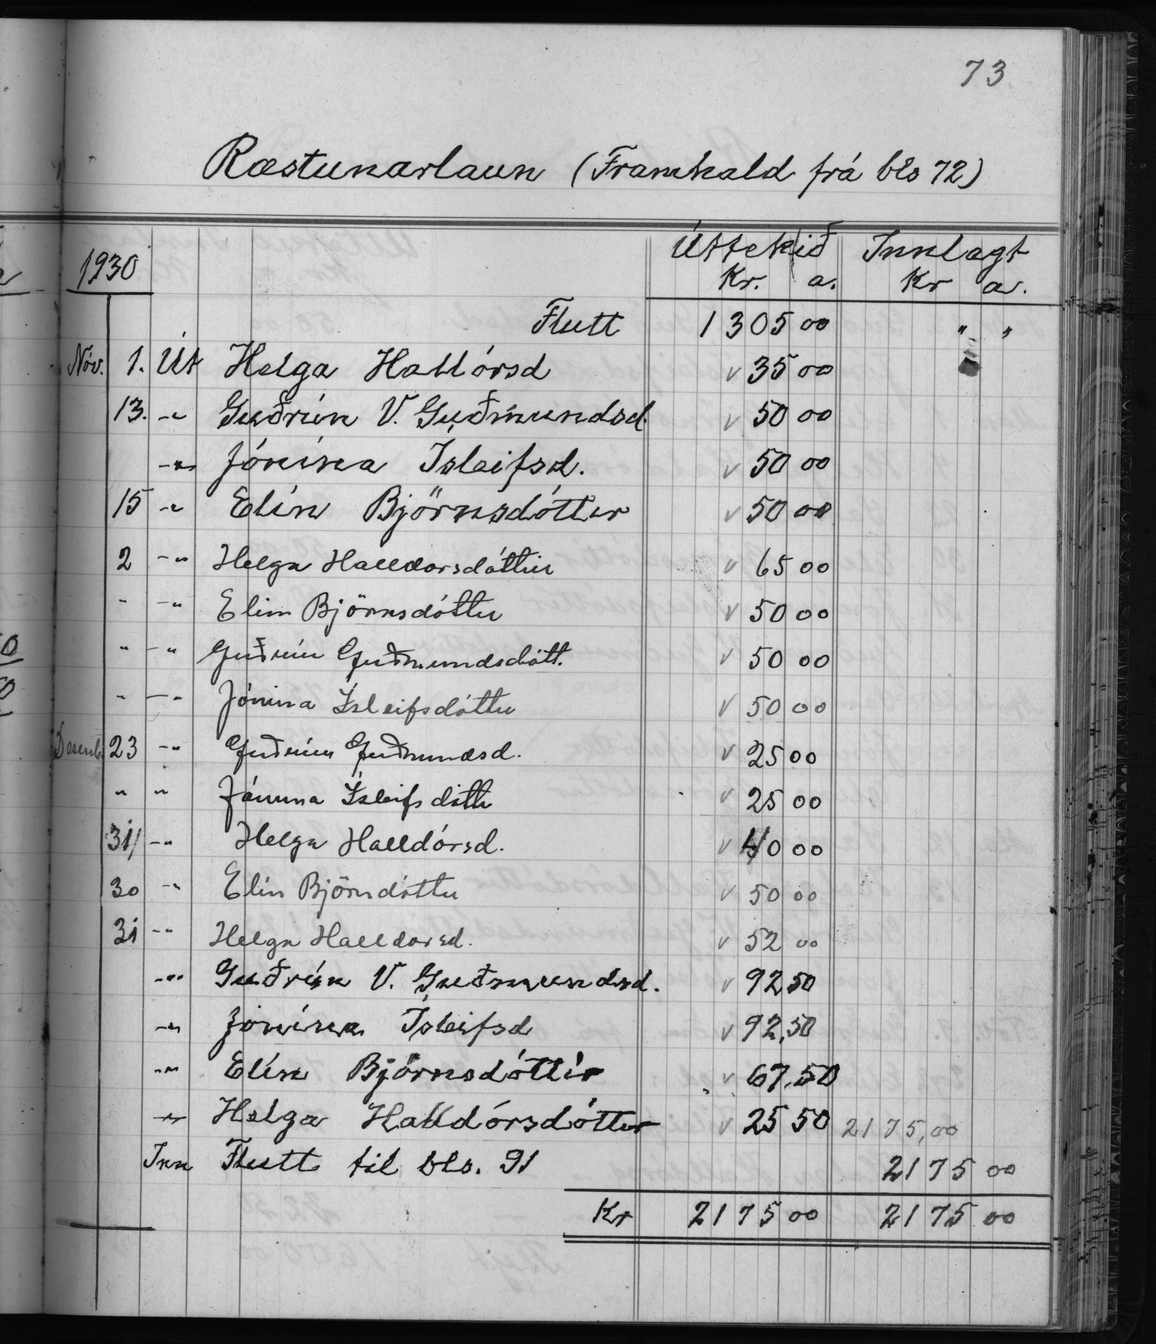 73
Ræstunarlaun (Framhald frá bls 72)
1930 Úttekið Innlagt
Kr. a. Kr a.
Flutt 1305 00 " "
Nóv. 1. Út Helga Halldórsd v 35 00
13. -"- Guðrún V. Guðmundsd. v 50 00
-"- Jónína Ísleifsd. v 50 00
15 -"- Elín Björnsdóttir v 50 00
2 -"- Helga Halldorsdóttir v 65 00
" -"- Elin Björnsdóttir v 50 00
" -"- Guðrún Guðmundsdótt. v 50 00
" -"- Jónina Ísleifsdóttir v 50 00
Desemb. 23 -"- Guðrún Guðmundsd. v 25 00
" " Jónina Ísleifsdóttir v 25 00
31/ -"- Helga Halldórsd. v 40 00
30 -"- Elín Björnsdóttir v 50 00
31 -"- Helga Halldorsd. v 52 00
-"- Guðrún V. Guðmundsd. v 92,50
-"- Jónína Ísleifsd v 92,50
-"- Elín Björnsdóttir v 67,50
-"- Helga Halldórsdóttir v 25 50 2175,00
Inn Flutt til bls. 91 2175 00
Kr 2175 00 2175 00